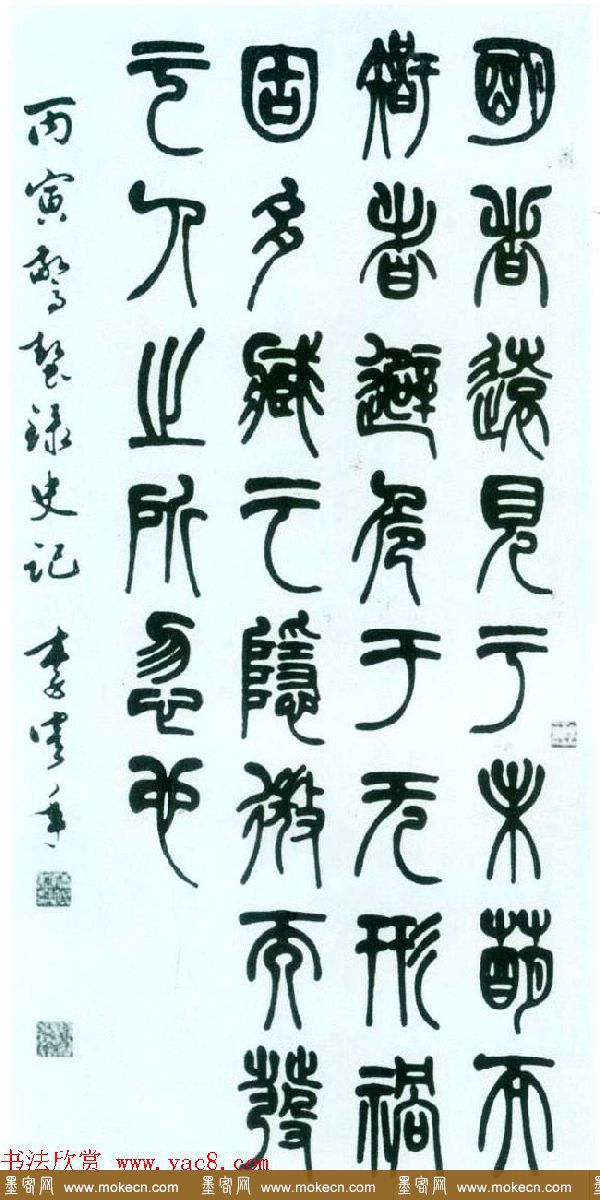 明者遠見于未萌而
智者避危于无形禍
固多藏于隱微而發
于人之所忽也
丙寅驚蟄録史記 李
书法欣赏 www.yac8.com
墨客网 www.mokecn.com 墨客网 www.mokecn.com 墨客网 www.mokecn.com